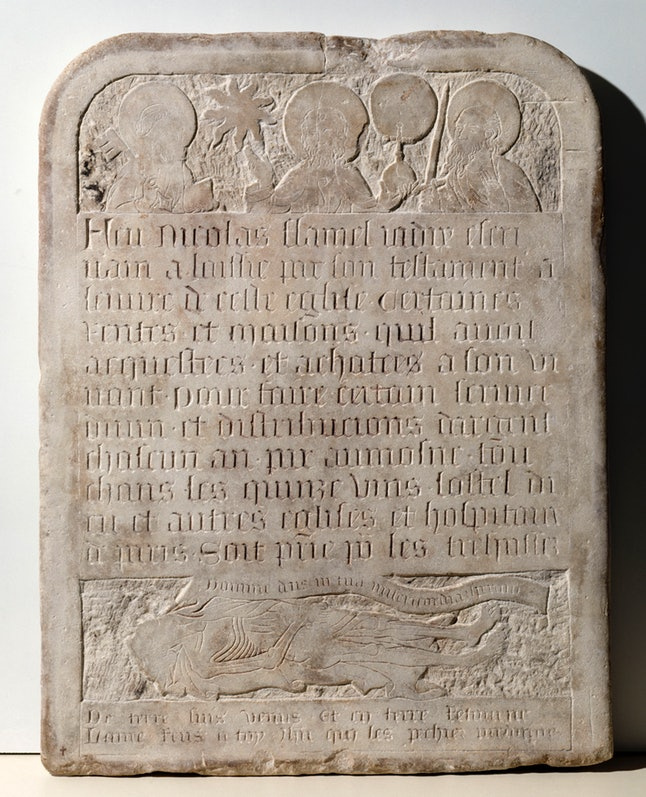 Feu nicolas flamel iadis escri
uain a laissie par son testament a
leuure de ceste eglise certaines
rentes et maisons quil auoit
acquestees et achatees a son vi
uant pour faire certain seruice
diuin et distribucions dargent
chascun an par aumosne tou
chans les quinze vins lostel di
eu et autres eglises et hospitaux
de paris Soit prie pour les trespassez
Domine deus in tua misericordia speraui
De terre suis venus et en terre retourne
Lame rens a toy qui les pechiez pardonne